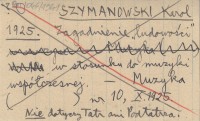 SZYMANOWSKI Karol
1925. Zagadnienie „ludowości"
w stosunku do muzyki
współczesnej. — Muzyka
nr 10, X.1925
Nie dotyczy Tatr ani Podtatrza.